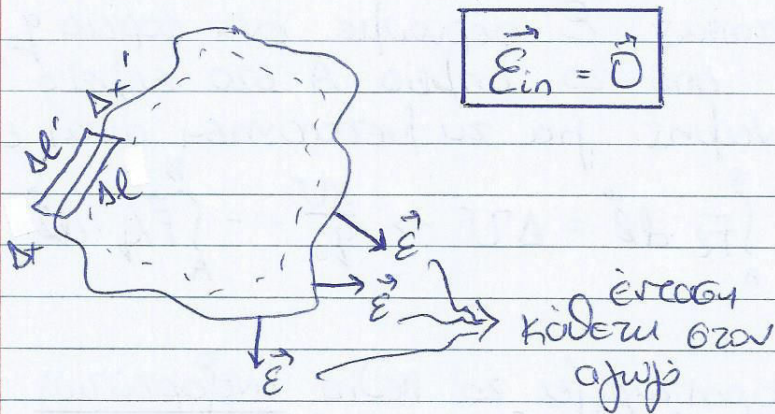 Ɛ⃗in = 0⃗
Δt'
Δl'
Δl
Δt
Ɛ⃗
Ɛ⃗
Ɛ⃗
ένταση
κάθετη στον
αγωγό